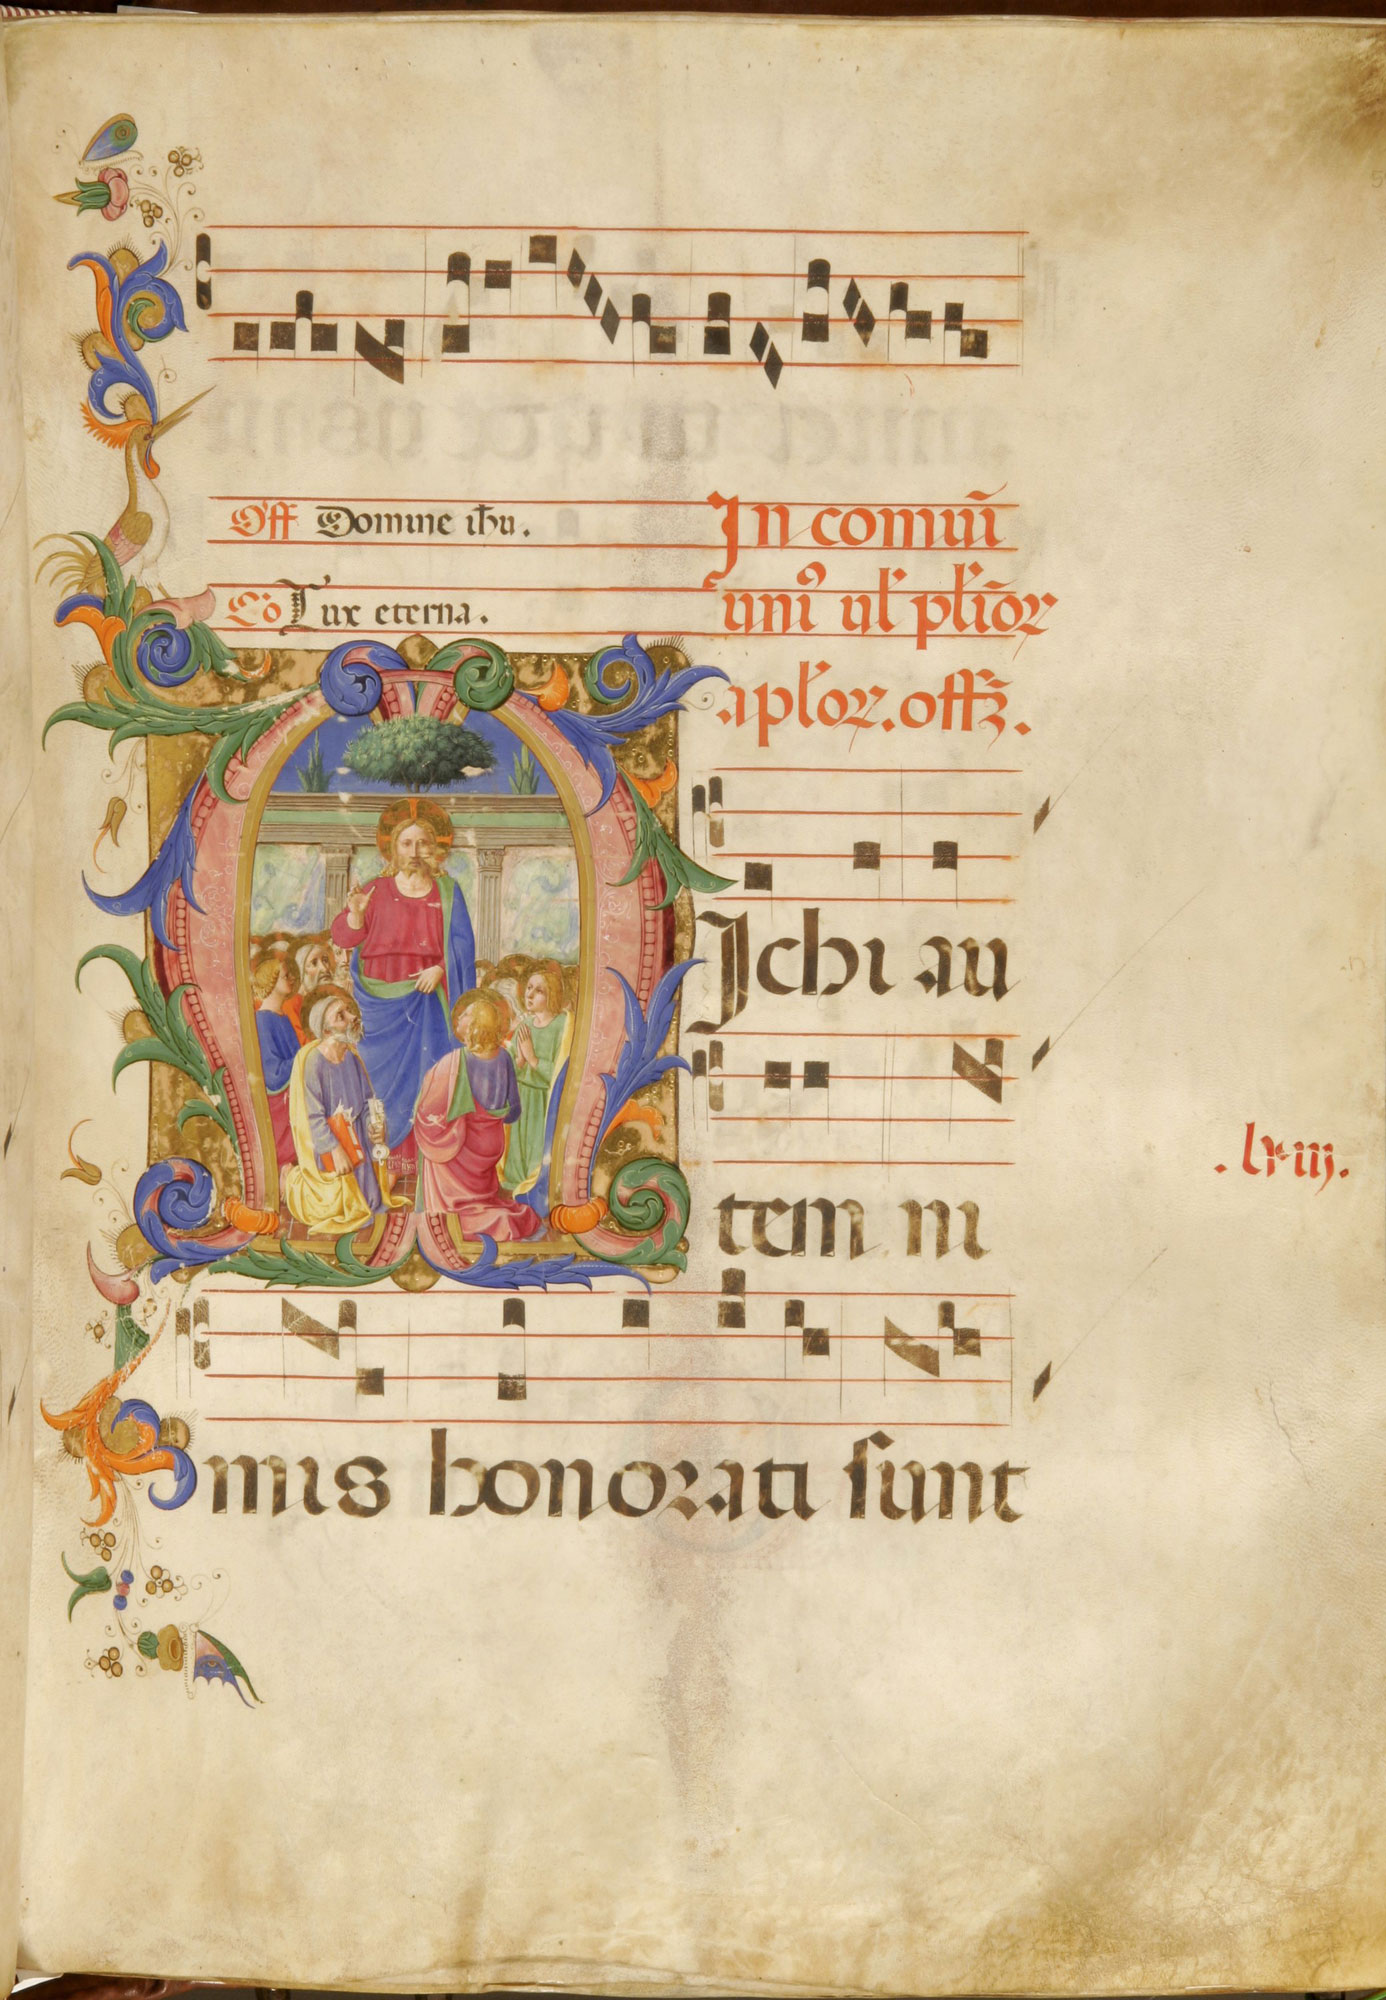 Off Domine ihu.
Co Lux eterna.
In comuni
uni9 ul' pl'ior
apl'or. off.
Michi au
tem ni
mis honorati sunt
. lxiii.